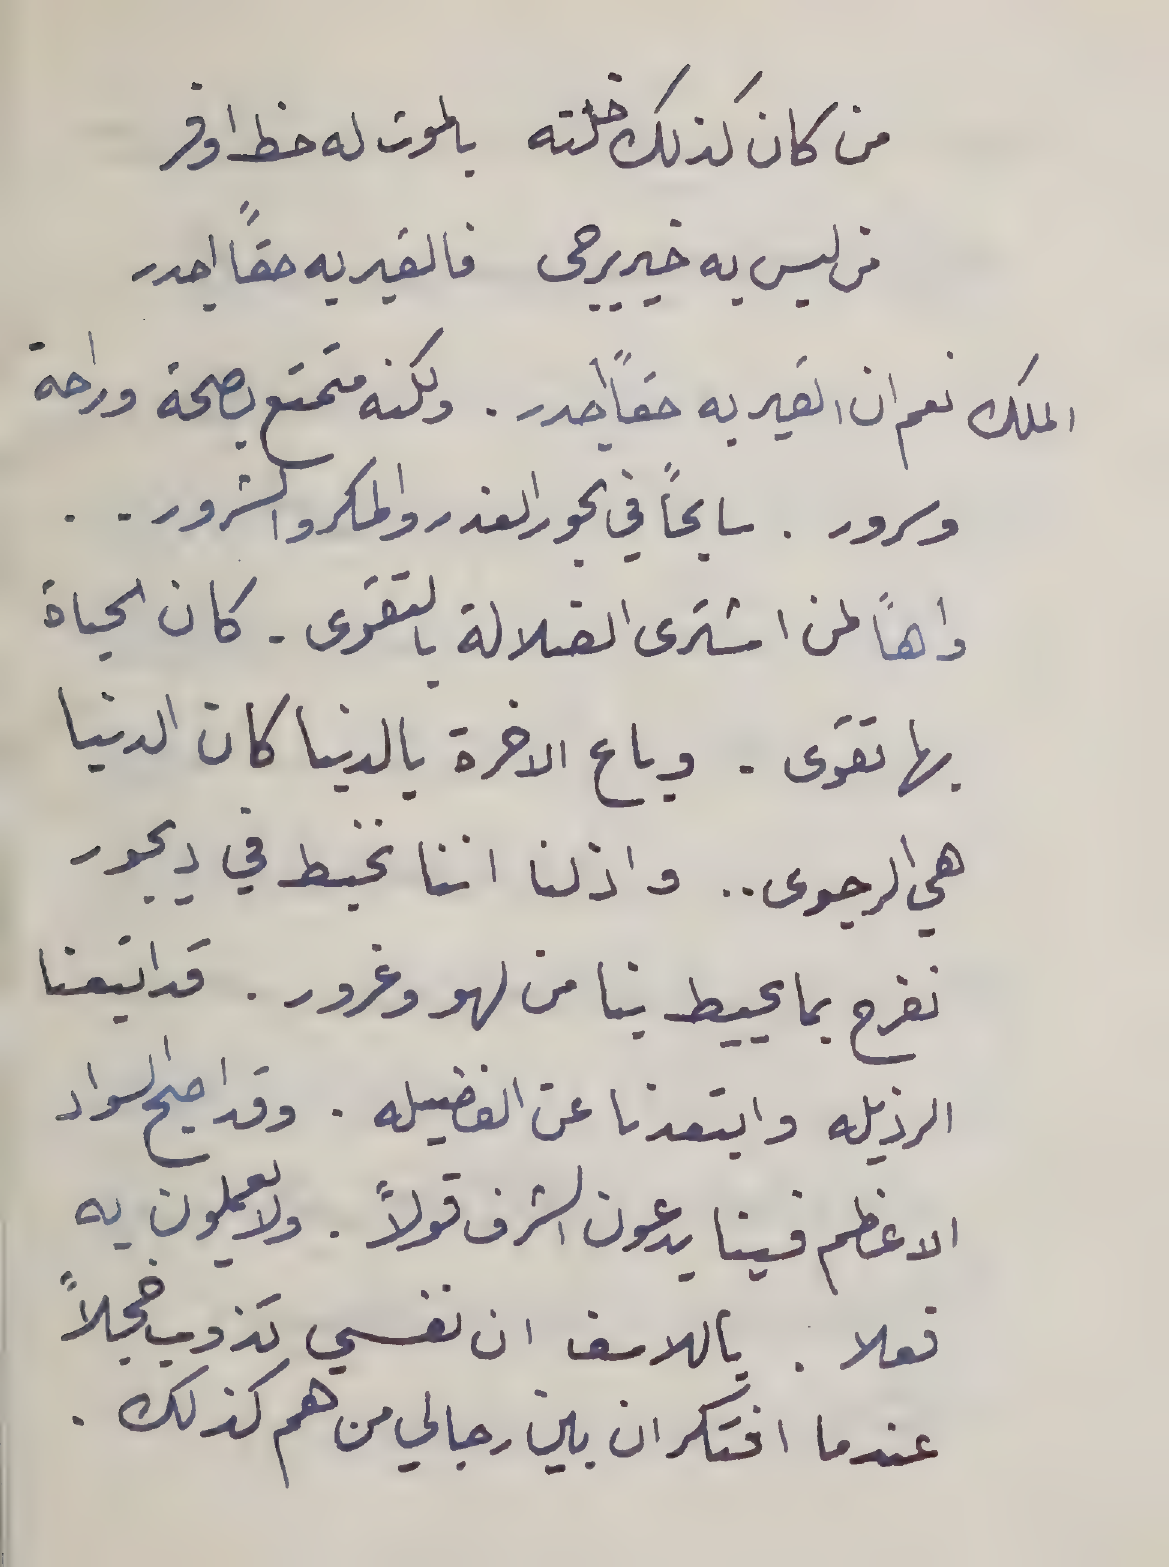 من كان كذلك خلته بالموت له حظ اوفر
من ليس به خير يرجى فالقبر به حقاً اجدر
الملك نعم ان القبر به حقاً اجدر . ولكنه متمتع بصحة وراحة
وسرور . سابحاً في بحور الغدر والمكر والشرور . .
واهاً لمن اشترى الضلالة بالتقوى . كان الحياة
بها تقوى . وباع الاخرة بالدنيا كان الدنيا
هي الرجوى .. واذلنا اننا نخبط في ديجور
نفرح بما يحيط بنا من لهو وغرور . قد اتبعنا
الرذيله وابتعدنا عن الفضيله . وقد اضحى السواد
الاعظم فينا يدعون الشرف قولاً . ولا يعملون به
فعلا . ياللاسف ان نفسي تذوب خجلاً
عندما افتكر ان بين رجالي من هم كذلك .